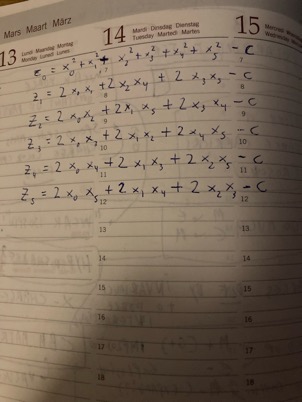 Mars Maart März
13 Lundi Maandag Montag
Monday Lunedì Lunes
14 Mardi Dinsdag Dienstag
Tuesday Martedì Martes
15
z₀ = x₀² + x₁² + x₂² + x₃² + x₄² + x₅² - c
z₁ = 2 x₀ x₁ + 2 x₂ x₄ + 2 x₃ x₅ - c
z₂ = 2 x₀ x₂ + 2 x₁ x₅ + 2 x₃ x₄ - c
z₃ = 2 x₀ x₃ + 2 x₁ x₂ + 2 x₄ x₅ - c
z₄ = 2 x₀ x₄ + 2 x₁ x₃ + 2 x₂ x₅ - c
z₅ = 2 x₀ x₅ + 2 x₁ x₄ + 2 x₂ x₃ - c
7 7
8 8
9 9
10 10
11 11
12 12
13 13
14 14
15 15
16 16
17 17
18 18